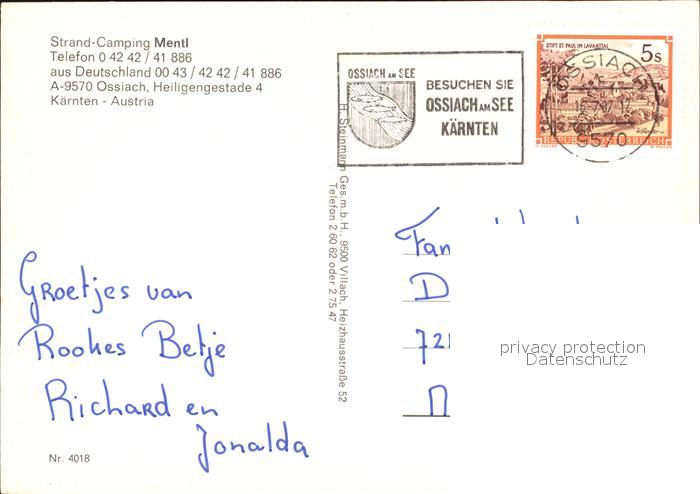 Strand-Camping Mentl
Telefon 0 42 42 / 41 886
aus Deutschland 00 43 / 42 42 / 41 886
A-9570 Ossiach, Heiligengestade 4
Kärnten - Austria
OSSIACH AM SEE
BESUCHEN SIE
OSSIACH AM SEE
KÄRNTEN
STIFT ST. PAUL IM LAVANTTAL
5s
OSSIACH
9570
REPUBLIK ÖSTERREICH
H. Steinmann Ges.m.b.H., 9500 Villach, Heizhausstraße 52
Telefon 2 60 62 oder 2 75 47
Groetjes van
Rookes Betje
Richard en
Jonalda
Fam
D
721
privacy protection
Datenschutz
Nr. 4018